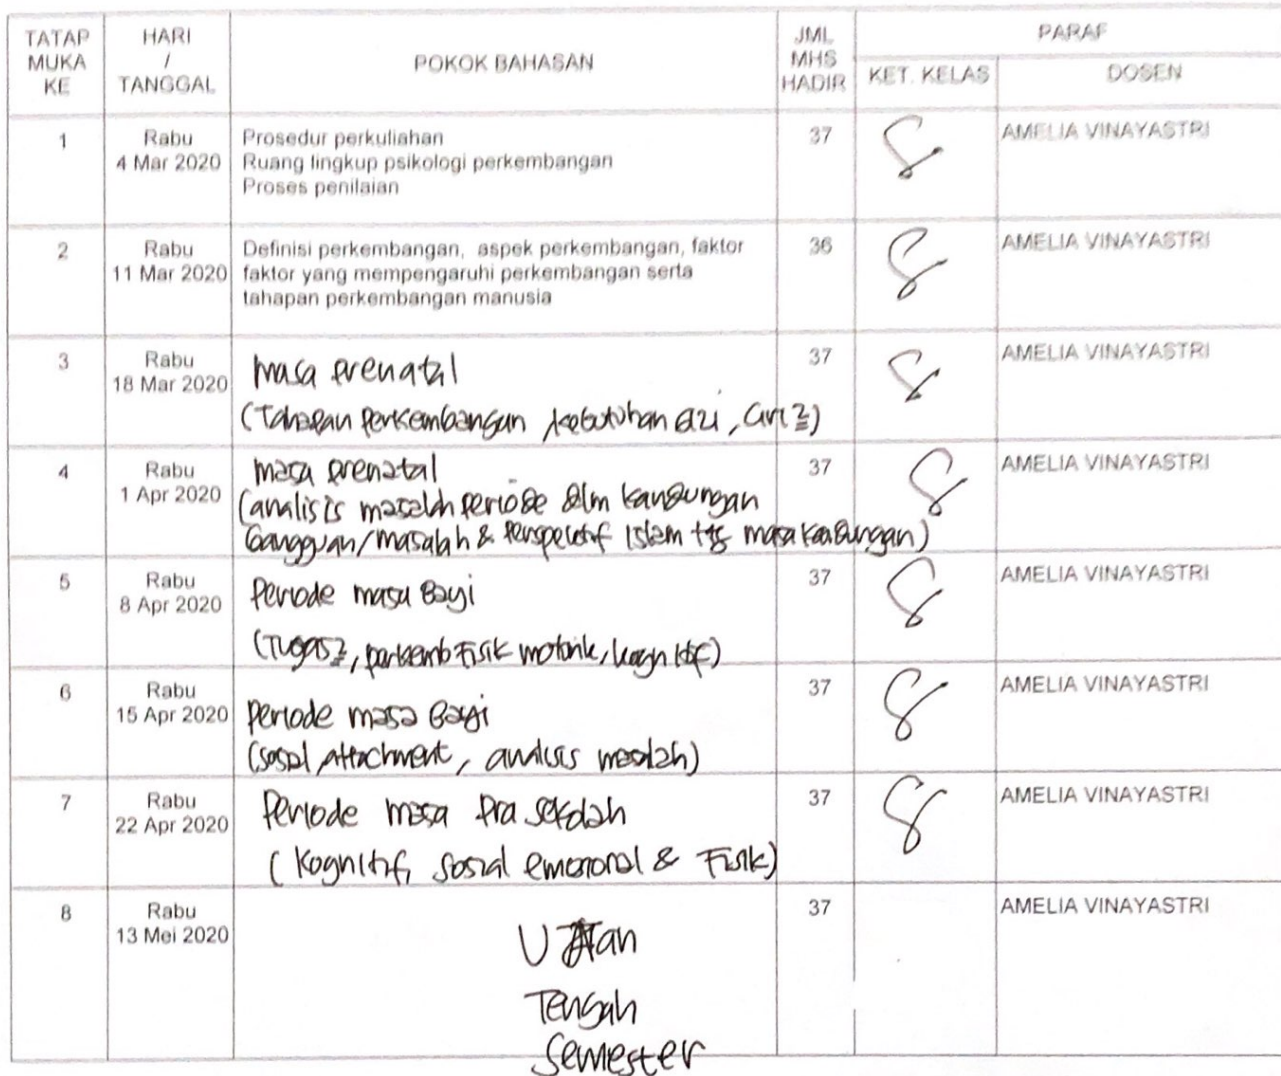 TATAP MUKA KE
HARI / TANGGAL
POKOK BAHASAN
JML MHS HADIR
PARAF
KET. KELAS
DOSEN
1
Rabu
4 Mar 2020
Prosedur perkuliahan
Ruang lingkup psikologi perkembangan
Proses penilaian
37
AMELIA VINAYASTRI
2
Rabu
11 Mar 2020
Definisi perkembangan, aspek perkembangan, faktor
faktor yang mempengaruhi perkembangan serta
tahapan perkembangan manusia
36
AMELIA VINAYASTRI
3
Rabu
18 Mar 2020
masa prenatal
(Tahapan Perkembangan, kebutuhan gizi, ciri2)
37
AMELIA VINAYASTRI
4
Rabu
1 Apr 2020
masa prenatal
(analisis masalah periode dlm kandungan
Gangguan/masalah & perspektif Islam ttg masa kandungan)
37
AMELIA VINAYASTRI
5
Rabu
8 Apr 2020
Periode masa Bayi
(Tugas2, perkemb Fisik motorik, kognitif)
37
AMELIA VINAYASTRI
6
Rabu
15 Apr 2020
Periode masa Bayi
(sosial, Attachment, analisis masalah)
37
AMELIA VINAYASTRI
7
Rabu
22 Apr 2020
Periode masa Pra sekolah
(Kognitif, sosial emosional & Fisik)
37
AMELIA VINAYASTRI
8
Rabu
13 Mei 2020
Tengah
Semester
37
AMELIA VINAYASTRI